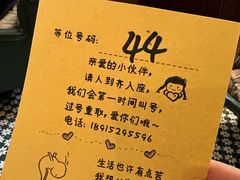 等位号码: 44
亲爱的小伙伴,
请人到齐入座,
我们会第一时间叫号,
过号重取,爱你们哦~
电话: 18915295596
生活也许有点苦